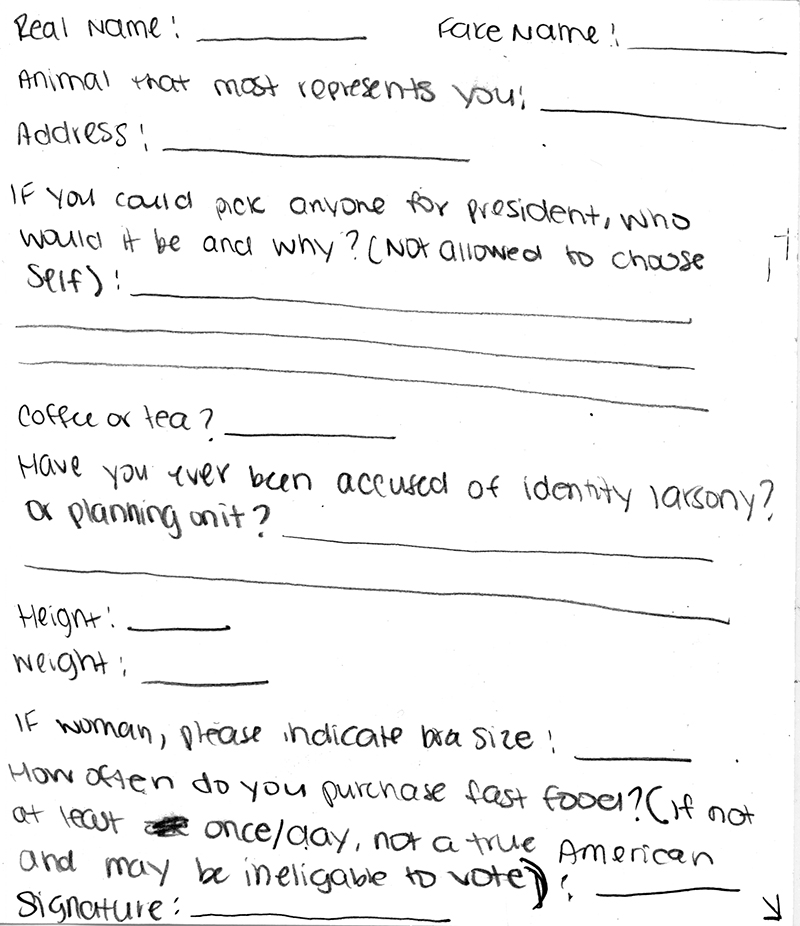 Real Name: Fake Name:
Animal that most represents you:
Address:
If you could pick anyone for president, who
would it be and why? (Not allowed to choose
self):
Coffee or tea?
Have you ever been accused of identity larsony?
or planning on it?
Height:
Weight:
If woman, please indicate bra size:
How often do you purchase fast food? (if not
at least once/day, not a true American
and may be ineligable to vote):
Signature: